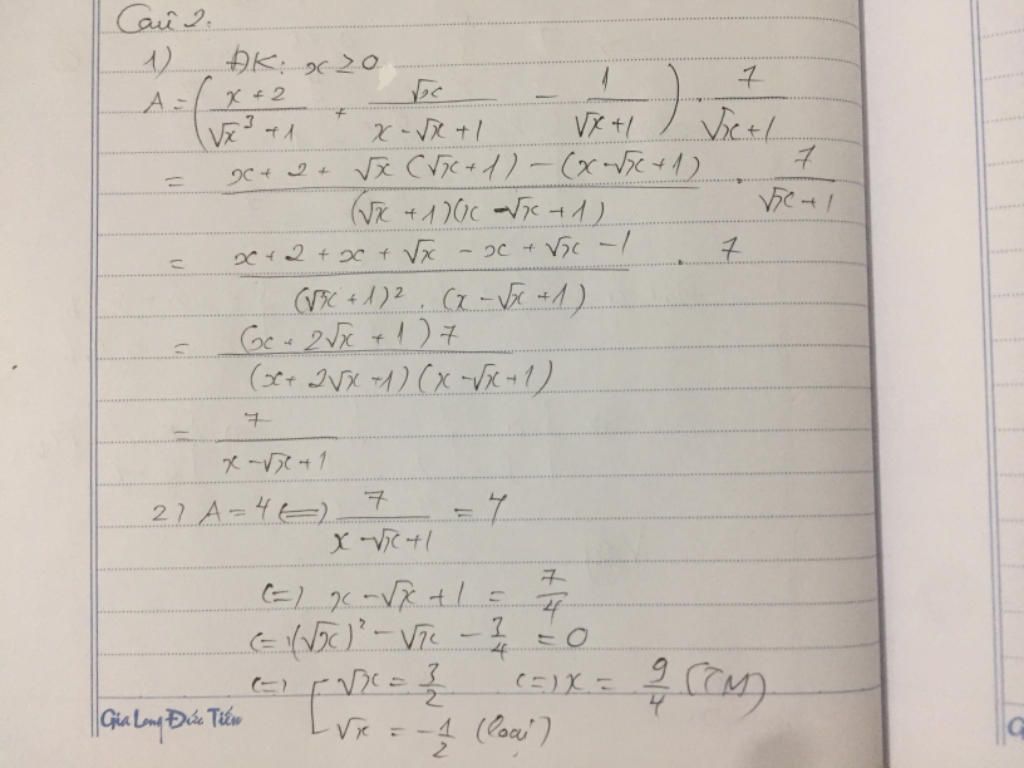 Câu 2:
1) ĐK: x ≥ 0
A = ( (x + 2)/(√x³ + 1) + √x/(x - √x + 1) - 1/(√x + 1) ) . 7/(√x + 1)
= (x + 2 + √x (√x + 1) - (x - √x + 1))/((√x + 1)(x - √x + 1)) . 7/(√x + 1)
= (x + 2 + x + √x - x + √x - 1)/((√x + 1)² . (x - √x + 1)) . 7
= ((x + 2√x + 1) 7)/((x + 2√x + 1)(x - √x + 1))
= 7/(x - √x + 1)
2) A = 4 <=> 7/(x - √x + 1) = 4
<=> x - √x + 1 = 7/4
<=> (√x)² - √x - 3/4 = 0
<=> [ √x = 3/2 <=> x = 9/4 (TM)
√x = -1/2 (loại)
Gia Long Đức Tiến